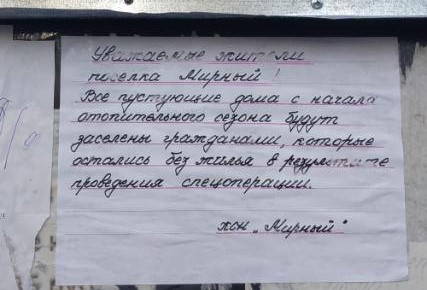 Уважаемые жители
поселка Мирный!
Все пустующие дома с начала
отопительного сезона будут
заселены гражданами, которые
остались без жилья в результате
проведения спецоперации.
жсн „Мирный"